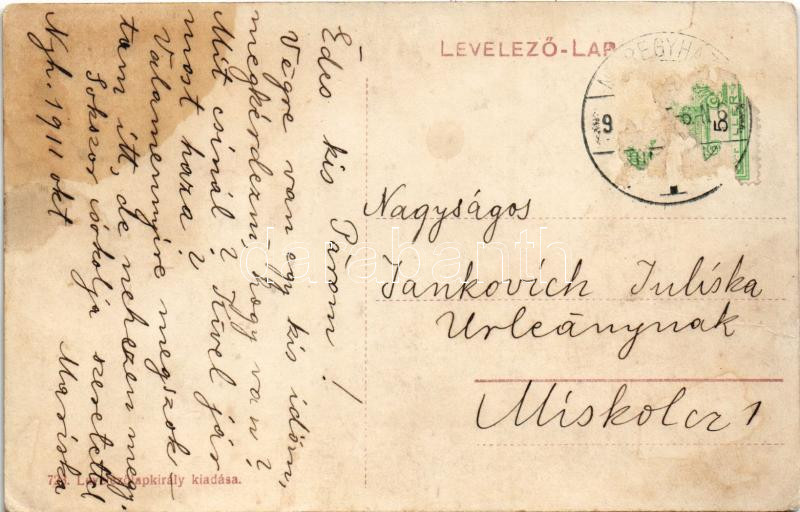 LEVELEZŐ-LAP
Édes kis Párom!
Végre van egy kis időm,
megkérdezni, hogy van?
Mit csinál? Kivel jár
most haza?
Valamennyire megszok-
tam itt, de nehezen megy.
Sokszor csókolja szeretettel
Mariska
Nyh. 1911 okt
Nagyságos
Jankovich Juliska
Urleánynak
Miskolcz 1
Levelezőlapkirály kiadása.
darabanth